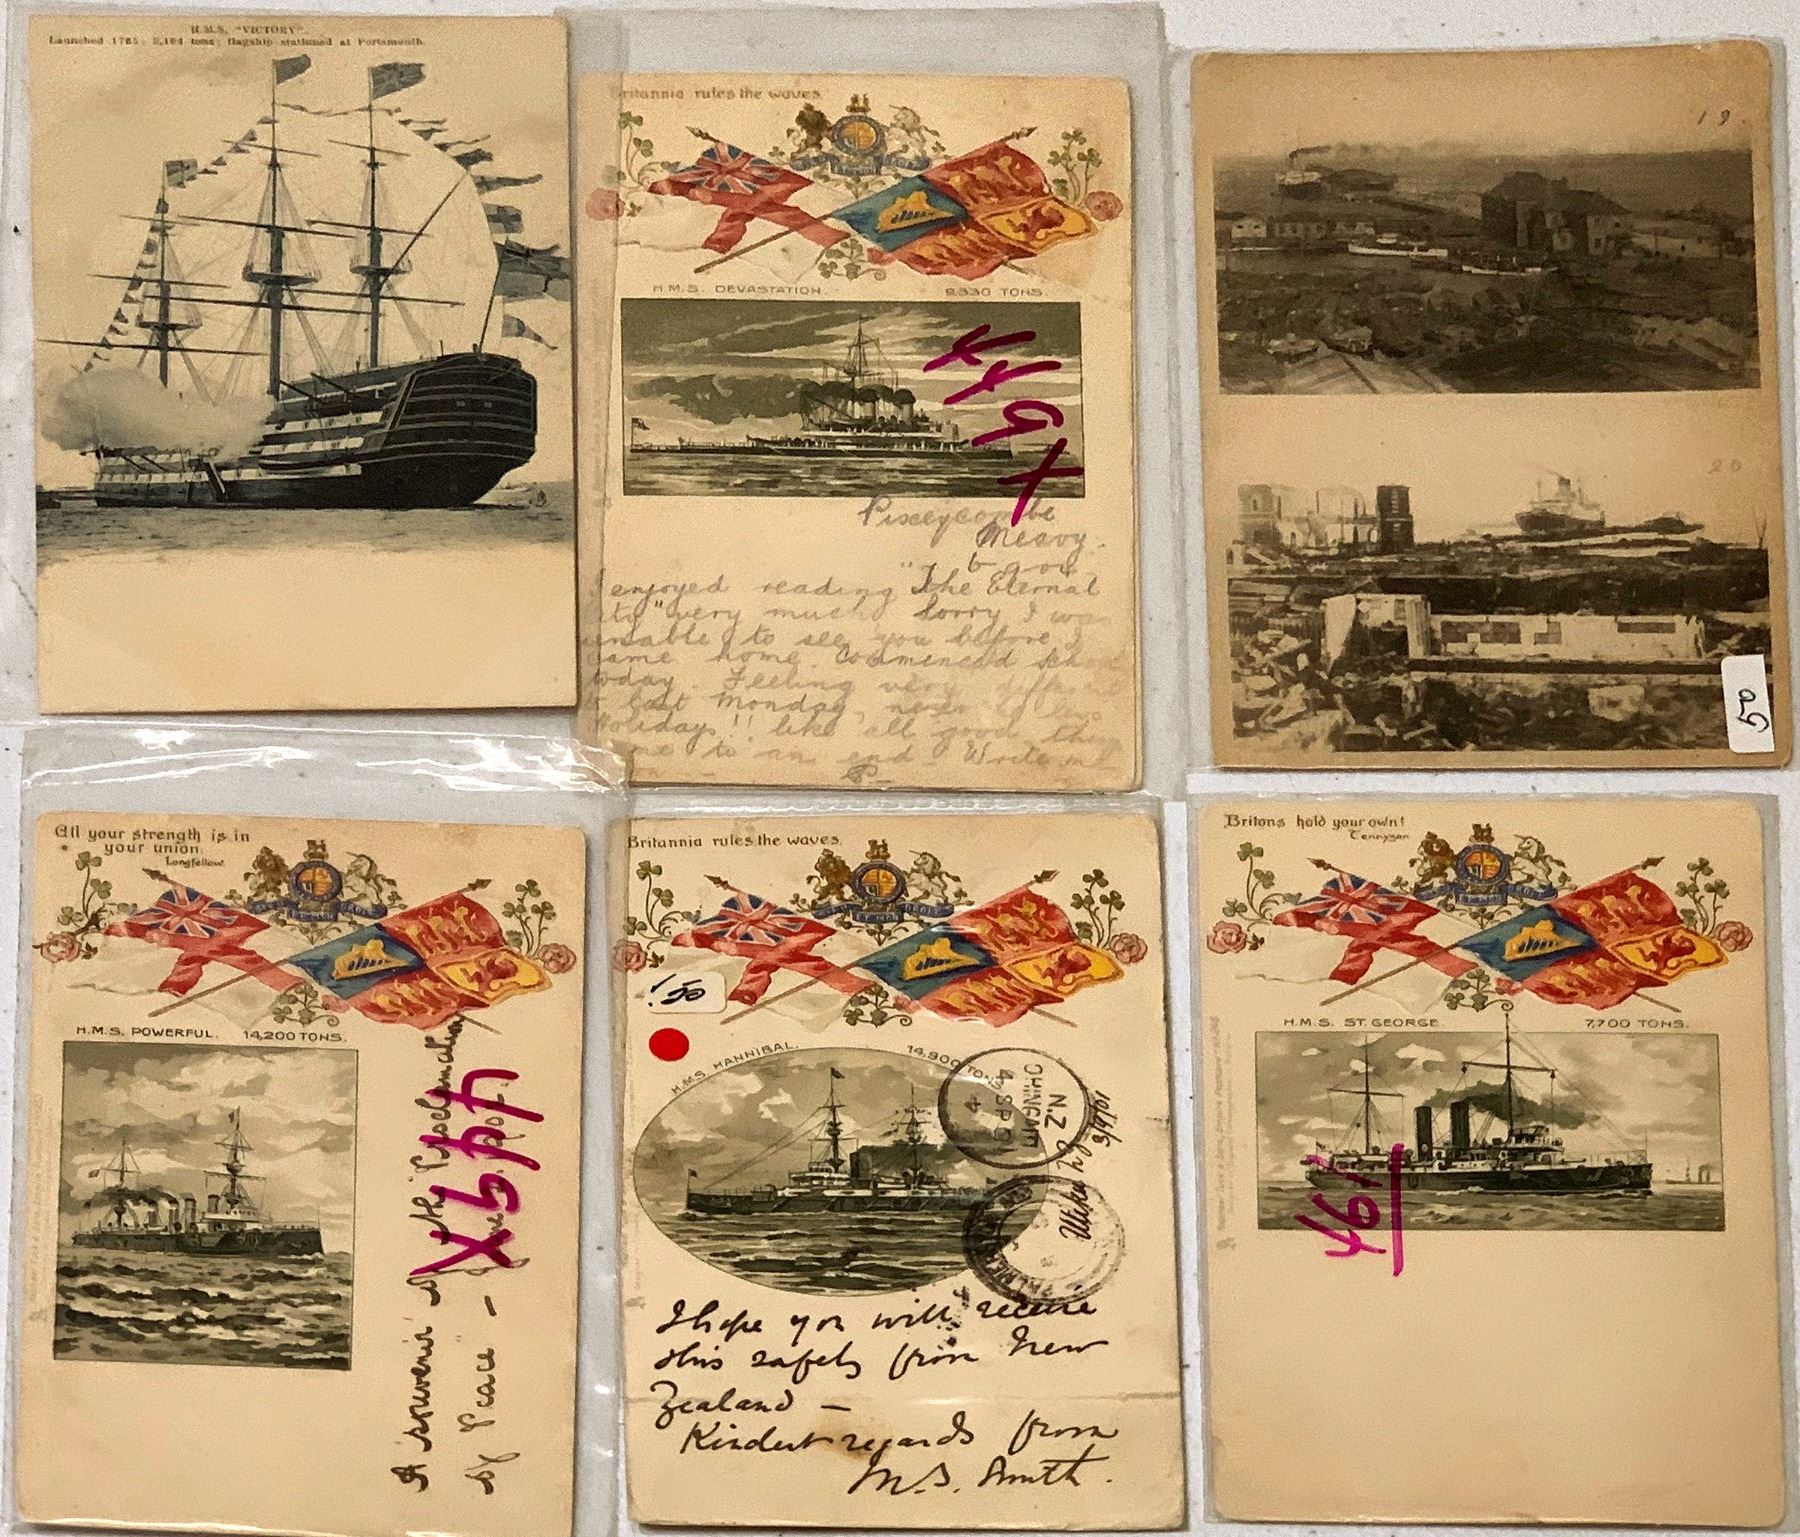 H.M.S. "VICTORY".
Launched 1765; 2,164 tons; flagship stationed at Portsmouth.
Britannia rules the waves.
H.M.S. DEVASTATION. 9,330 TONS.
449X
Meavy.
enjoyed reading "The Eternal
very much. Sorry I was
unable to see you before I
came home. Commenced School
today. Feeling very different
last Monday,
Holidays!! like all good things
to an end. Write
19.
20
50
All your strength is in
your union.
Longfellow.
H.M.S. POWERFUL. 14,200 TONS.
449X
A souvenir of the Proclamation
of Peace –
Britannia rules the waves.
1.50
H.M.S. HANNIBAL. 14,900 TONS.
4 SP 01
N.Z.
3/9/01
I hope you will receive
this safely from New
Zealand –
Kindest regards from
M.S. Smith.
Britons hold your own!
Tennyson
H.M.S. ST. GEORGE. 7,700 TONS.
461